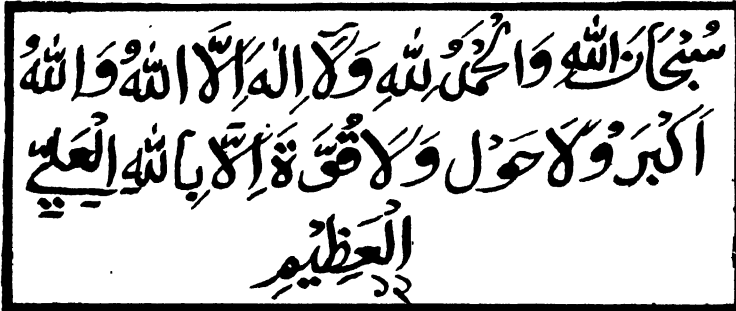 سُبْحَانَ اللهِ وَالْحَمْدُ لِلّٰهِ وَلَآ اِلٰهَ اِلَّا اللهُ وَاللهُ
اَكْبَرُ وَلَا حَوْلَ وَلَا قُوَّةَ اِلَّا بِاللهِ الْعَلِيِّ
الْعَظِيْمِ